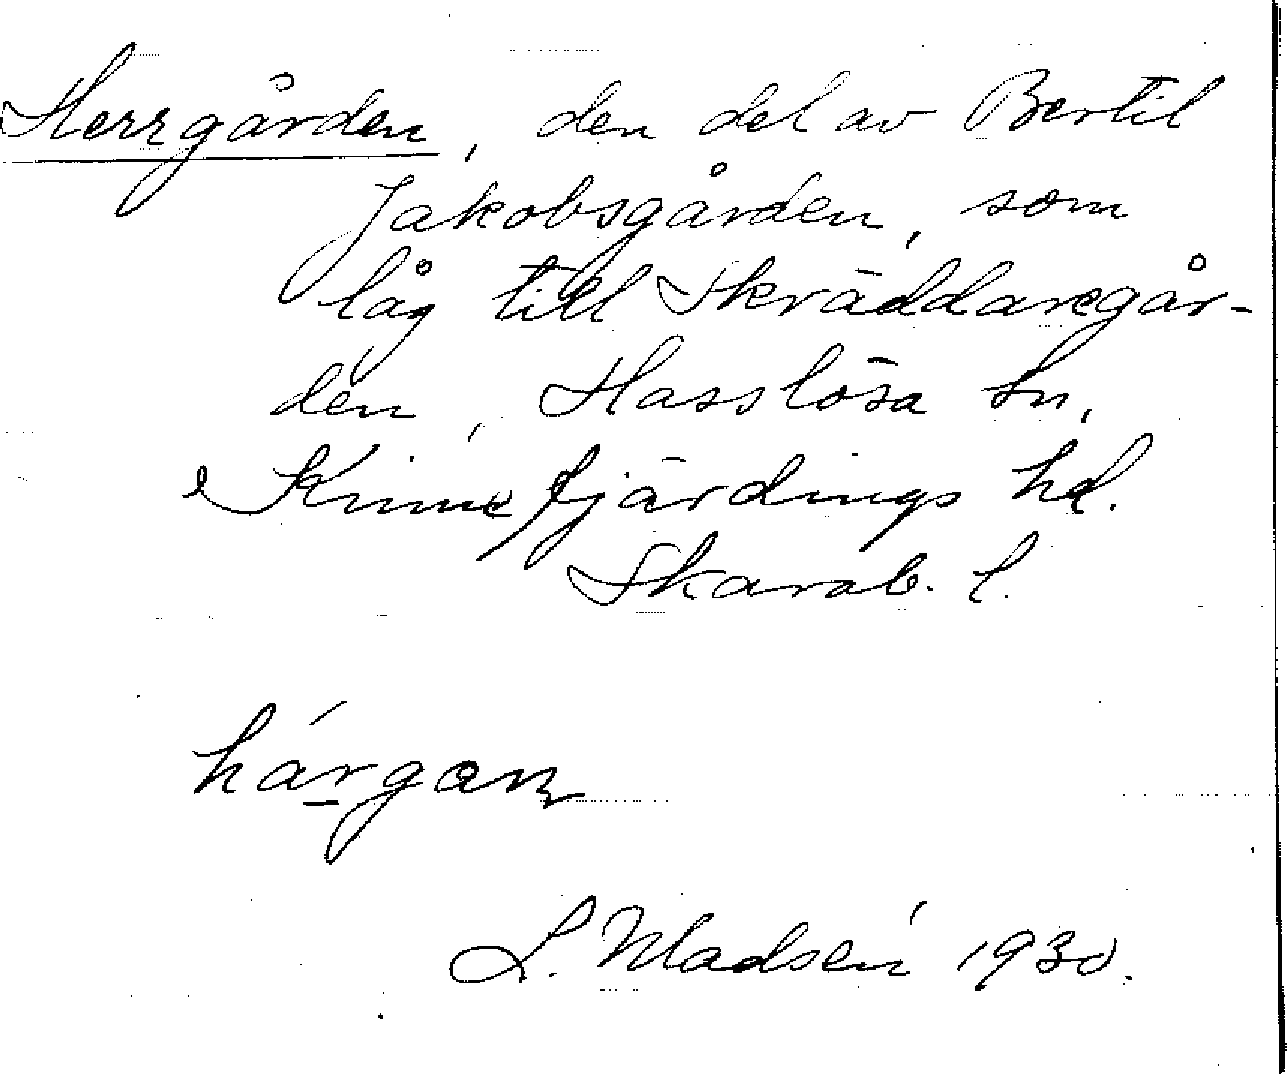 Herrgården, den del av Bertil
Jakobsgården, som
låg till Skräddaregår-
den, Hasslösa sn,
Kinnefjärdings hd.
Skarab. l.
L. Madsén 1930.